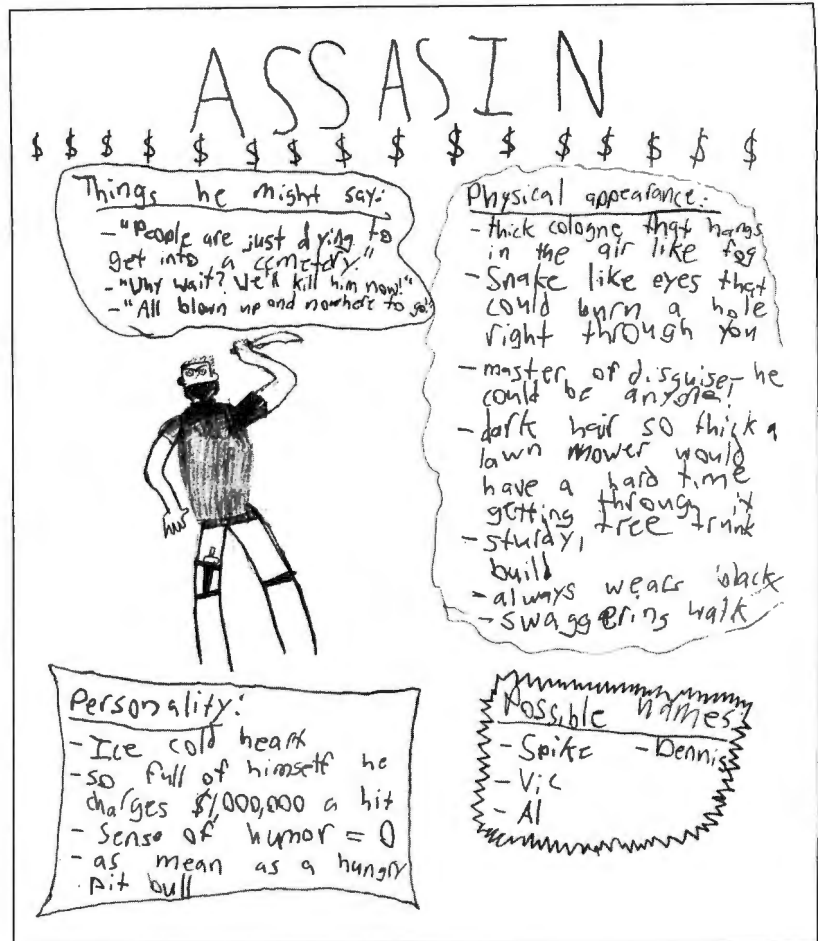 ASSASIN
$ $ $ $ $ $ $ $ $ $ $ $ $ $ $
Things he might say:
- "People are just dying to
get into a cemetery."
- "Why wait? We'll kill him now!"
- "All blown up and nowhere to go!"
Physical appearance:
- thick cologne that hangs
in the air like fog
- Snake like eyes that
could burn a hole
right through you
- master of disguise - he
could be anyone!
- dark hair so thick a
lawn mower would
have a hard time
getting through it
- sturdy, tree trunk
build
- always wears black
- swaggering walk
Personality:
- Ice cold heart
- so full of himself he
charges $1,000,000 a hit
- Sense of humor = 0
- as mean as a hungry
pit bull
Possible names:
- Spike - Dennis
- Vic
- Al